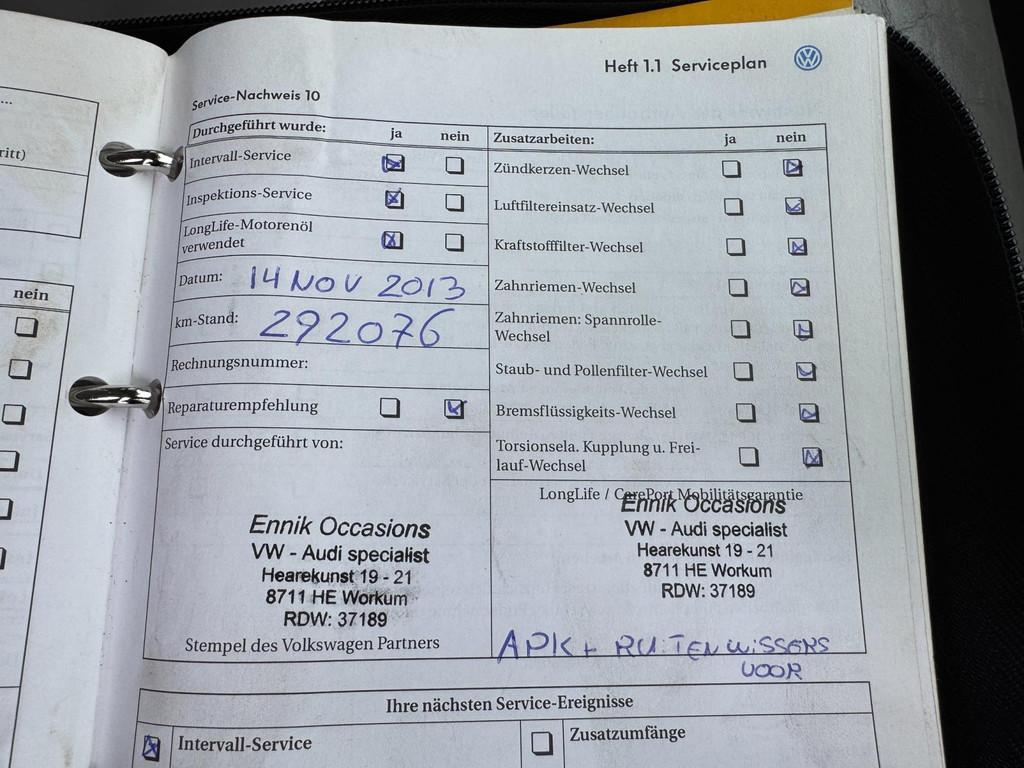 Heft 1.1 Serviceplan
Service-Nachweis 10
Durchgeführt wurde: ja nein
Intervall-Service
Inspektions-Service
LongLife-Motorenöl
verwendet
Datum: 14 NOV 2013
km-Stand: 292076
Rechnungsnummer:
Reparaturempfehlung
Service durchgeführt von:
Ennik Occasions
VW - Audi specialist
Hearekunst 19 - 21
8711 HE Workum
RDW: 37189
Stempel des Volkswagen Partners
Zusatzarbeiten: ja nein
Zündkerzen-Wechsel
Luftfiltereinsatz-Wechsel
Kraftstofffilter-Wechsel
Zahnriemen-Wechsel
Zahnriemen: Spannrolle-
Wechsel
Staub- und Pollenfilter-Wechsel
Bremsflüssigkeits-Wechsel
Torsionsela. Kupplung u. Frei-
lauf-Wechsel
LongLife / CarePort Mobilitätsgarantie
Ennik Occasions
VW - Audi specialist
Hearekunst 19 - 21
8711 HE Workum
RDW: 37189
APK + RUITENWISSERS
VOOR
Ihre nächsten Service-Ereignisse
Intervall-Service
Zusatzumfänge
ritt)
nein